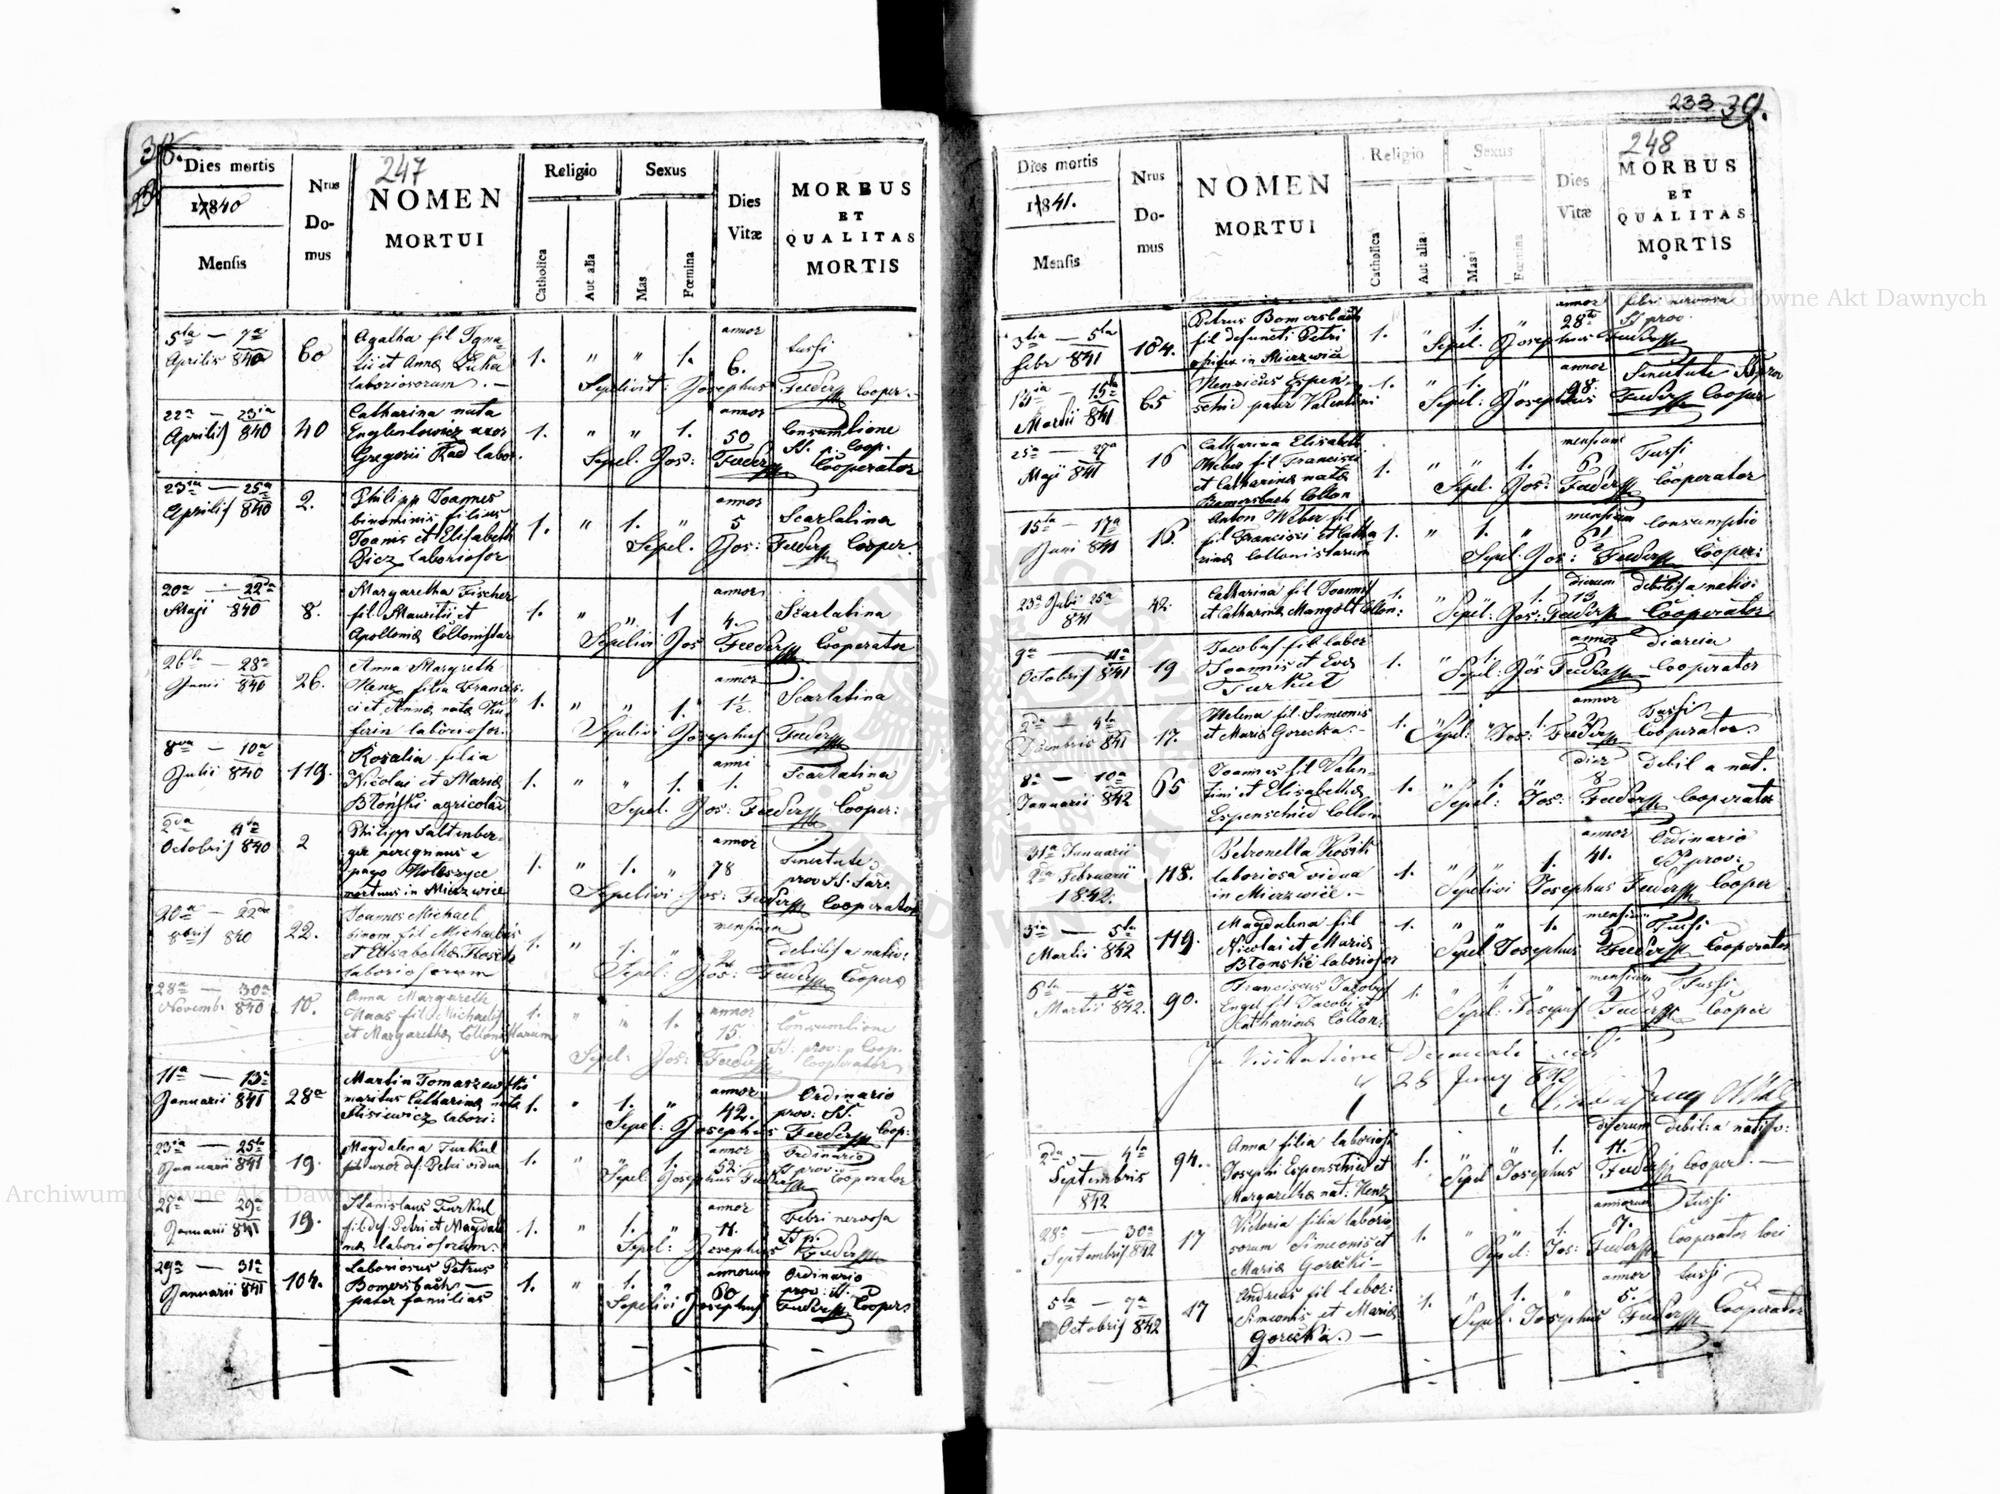 38.
247
Dies mortis
17840
Mensis
Nrus
Do-
mus
NOMEN
MORTUI
Religio
Sexus
Catholica
Aut alia
Mas
Fœmina
Dies
Vitæ
MORBUS
ET
QUALITAS
MORTIS
5ta — 7a
Aprilis 840
60
Agatha fil Igna-
tii et Anna
laboriosorum. —
1. " " 1.
annor
6.
tussi
Sepelivit: Josephus Feeders Cooper. -
22a — 23ia
Aprilis 840
40
Catharina nata
uxor
Gregorii Rad labor.
1. " " 1.
annor
50
Consumtione
SS. p. Coop.
Sepel. Jos: Feeders Cooperator
23ia — 25a
Aprilis 840
2.
Philipp Joannes
binominis filius
Joanis et Elisabeth
Biez laboriosor
1. " 1. "
annor
5
Scarlatina
Sepel. Jos: Feeders Cooper.
20a — 22da
Maji 840
8.
Margaretha Fischer
fil. Mauritii et
Apollonia Collonistar
1. " " 1
annor
4.
Scarlatina
Sepelivi Jos Feeders Cooperator
26ta — 28a
Junii 840
26.
Anna Margreth
Henz filia Francis-
ci et Anna nata
laboriosor.
1. " " 1.
annor
1½
Scarlatina
Sepelivi Josephus Feeders
8va — 10a
Julii 840
119.
Rosalia filia
Nicolai et Maria
Błoński agricolar
1. " " 1.
anni
1.
Scarlatina
Sepel. Jos: Feeders Cooper:
2da 4ta
Octobris 840
2
Philipp Saltenber-
ger peregrinus e
pago
mortuus in Mierzwice
1. " 1. "
annor
78
Senectute
prov SS. Sacr.
Sepelivi Jos: Feeders Cooperator
20a — 22da
8bris 840
22.
Joannes Michael
binom. fil Michaelis
et Elisabetha
laboriosorum
1. " 1. "
mensium
debilis a nativ:
Sepel: Jos: Feeders Cooper
28a — 30a
Novemb: 840
10.
Anna Margareth
Haas fil Michaelis
et Margaretha Collonistarum
1. " " 1.
annor
15.
Consumtione
SS: prov: p Coop.
Sepel: Jos: Feeders Cooperator
11a — 13a
Januarii 841
28a
Martin Tomaszewski
maritus Catharina nata
Misiewicz labori:
1. " 1. "
annor
42.
Ordinario
prov: SS.
Sepel: Josephus Feeders Coop:
23ia — 25ta
Januarii 841
19.
Magdalena Turkul
uxor df: Petri vidua
1. " " 1.
annor
52.
Ordinario
SS prov:
Sepel: Josephus Feeders Cooperator
27a — 29a
Januarii 841
19.
Stanislaus Turkul
fil. df. Petri et Magdale
na laboriosorum.
1. " 1. "
annor
11.
Febri nervosa
SS p.
Sepel: Josephus Feeders
29a — 31a
Januarii 841
104.
Laboriosus Petrus
Bomersbach —
pater familias
1. " 1. "
annorum
60
Ordinario
prov: SS.
Sepelivi Josephus Feeders Cooper
233 39.
248
Dies mortis
17841.
Mensis
Nrus
Do-
mus
NOMEN
MORTUI
Religio
Sexus
Catholica
Aut alia
Mas
Fœmina
Dies
Vitæ
MORBUS
ET
QUALITAS
MORTIS
3tia — 5ta
Febr 841
104.
Petrus Bomersbach
fil defuncti Petri
in Mierzwice
1. " 1. "
annor
28
febri nervosa
SS prov.
Sepel. Josephus Feeders
13ia — 15ta
Martii 841
65
Henricus Espen-
schid pater Valentini
1. " 1. "
annor
Senectute SS prov
Sepel: Josephus Feeders Cooper
25a — 27a
Maji 841
16
Catharina Elisabeth
Weber fil Francisci
et Catharina nata
Bomersbach Collon
1. " " 1.
mensium
6.
Tussi
Sepel. Jos: Feeders Cooperator
15ta — 17a
Juni 841
16.
Anton Weber fil
fil Francisci et Catha
rina Collonistarum
1. " 1. "
mensium
Consumptio
Sepel. Jos: Feeders Cooper:
23a Julii 25a
841
42.
Catharina fil Joannis
et Catharina Mangolt Collon:
1. " " 1.
dierum
13
debilis a nativ:
Sepel: Jos: Feeders Cooperator
9a — 11a
Octobris 841
19
Jacobus fil labor
Joannis et Eva
Turkul
1. " 1. "
annor
diareia
Sepel: Jos Feeders Cooperator
2da — 4ta
Decembris 841
17.
Helena fil. Simeonis
et Maria Gorecka. -
1. " " 1.
annor
Tussi
Sepel: Jos: Feeders Cooperator.
8a — 10a
Januarii 842
65
Joannes fil Valen-
tini et Elisabetha
Espenschied Collon
1. " 1. "
dier
8
debil a nat.
Sepel: Jos: Feeders Cooperator
31a Januarii
2da Februarii
1842.
118.
Petronella Kosik
laboriosa vidua
in Mierzwice. —
1. " " 1.
annor
41.
Ordinario
SS prov:
Sepelivi Josephus Feeders Cooper
3ia — 5ta
Martii 842
119.
Magdalena fil
Nicolai et Maria
Błonskie laboriosor
1. " " 1.
mensium
9
Tussi
Sepel Josephus Feeders Cooperator
6ta — 8a
Martii 842.
90.
Franciscus Jacobus
Engel fil Jacobi et
Catharina Collon:
1. " 1. "
mensium
9
Tussi
Sepel: Josephus Feeders Cooper
In Visitatione Decanali
28 Juny 842
2da — 4ta
Septembris
842
94.
Anna filia laboriosi
Josephi Espenschied et
Margaretha nat: Henz
1. " " 1.
dierum
11.
debil: a nativ:
Sepel Josephus Feeders Cooper. —
28a — 30a
Septembris 842
17
Victoria filia laborio-
sorum Simeonis et
Maria Gorecki —
1. " " 1.
annorum
7.
tussi
Sepel: Jos: Feeders Cooperator loci
5ta — 7a
Octobris 842
17
Andreas fil labor:
Simeonis et Maria
Gorecka. —
1. " 1. "
annor
5.
tussi
Sepel: Josephus Feeders Cooperator
Archiwum Główne Akt Dawnych
Archiwum Główne Akt Dawnych